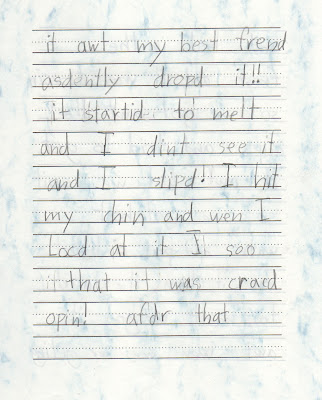 it awt my best frend
asdently dropd it!!
it startid to melt
and I dint see it
and I slipd! I hit
my chin and wen I
Locd at it I soo
that it was cracd
opin! afdr that